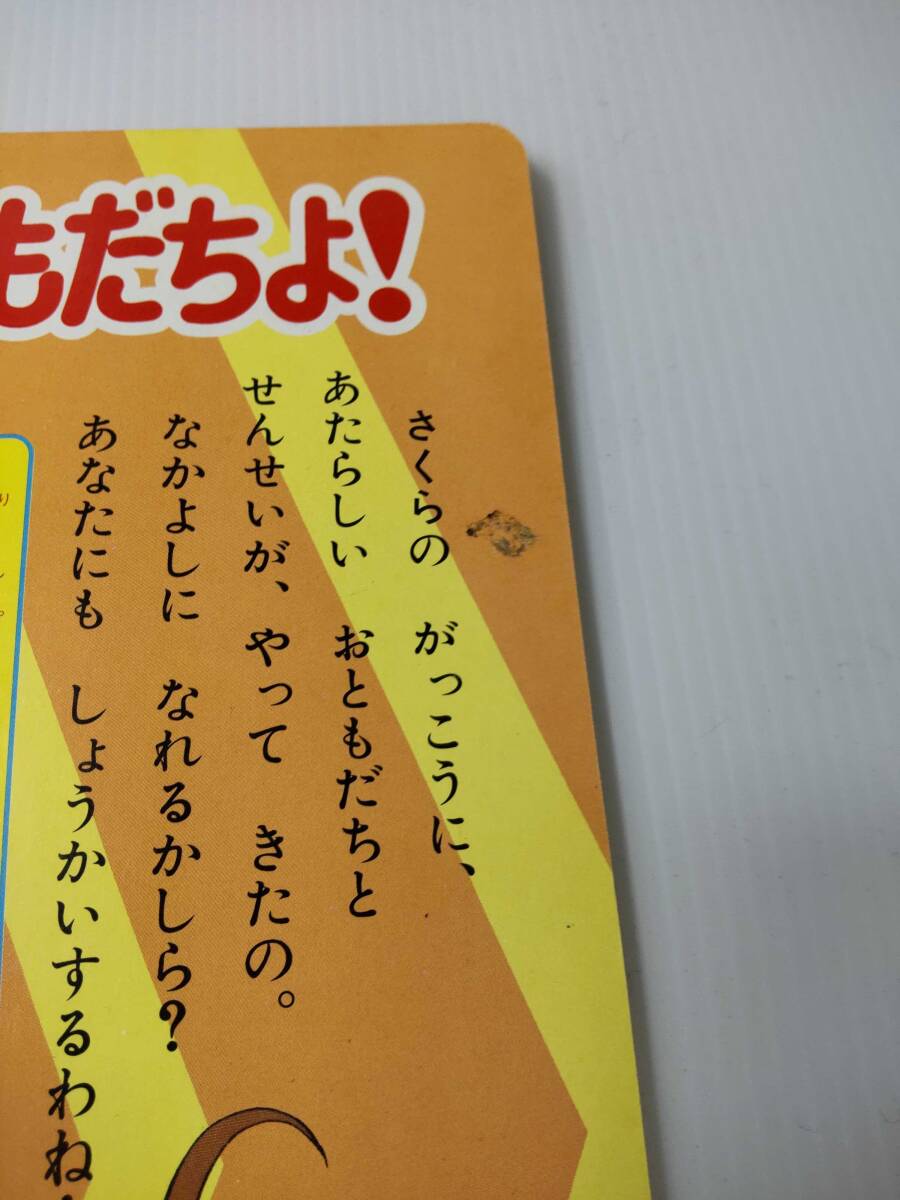 もだちよ!
さくらの がっこうに、
あたらしい おともだちと
せんせいが、やって きたの。
なかよしに なれるかしら?
あなたにも しょうかいするわね